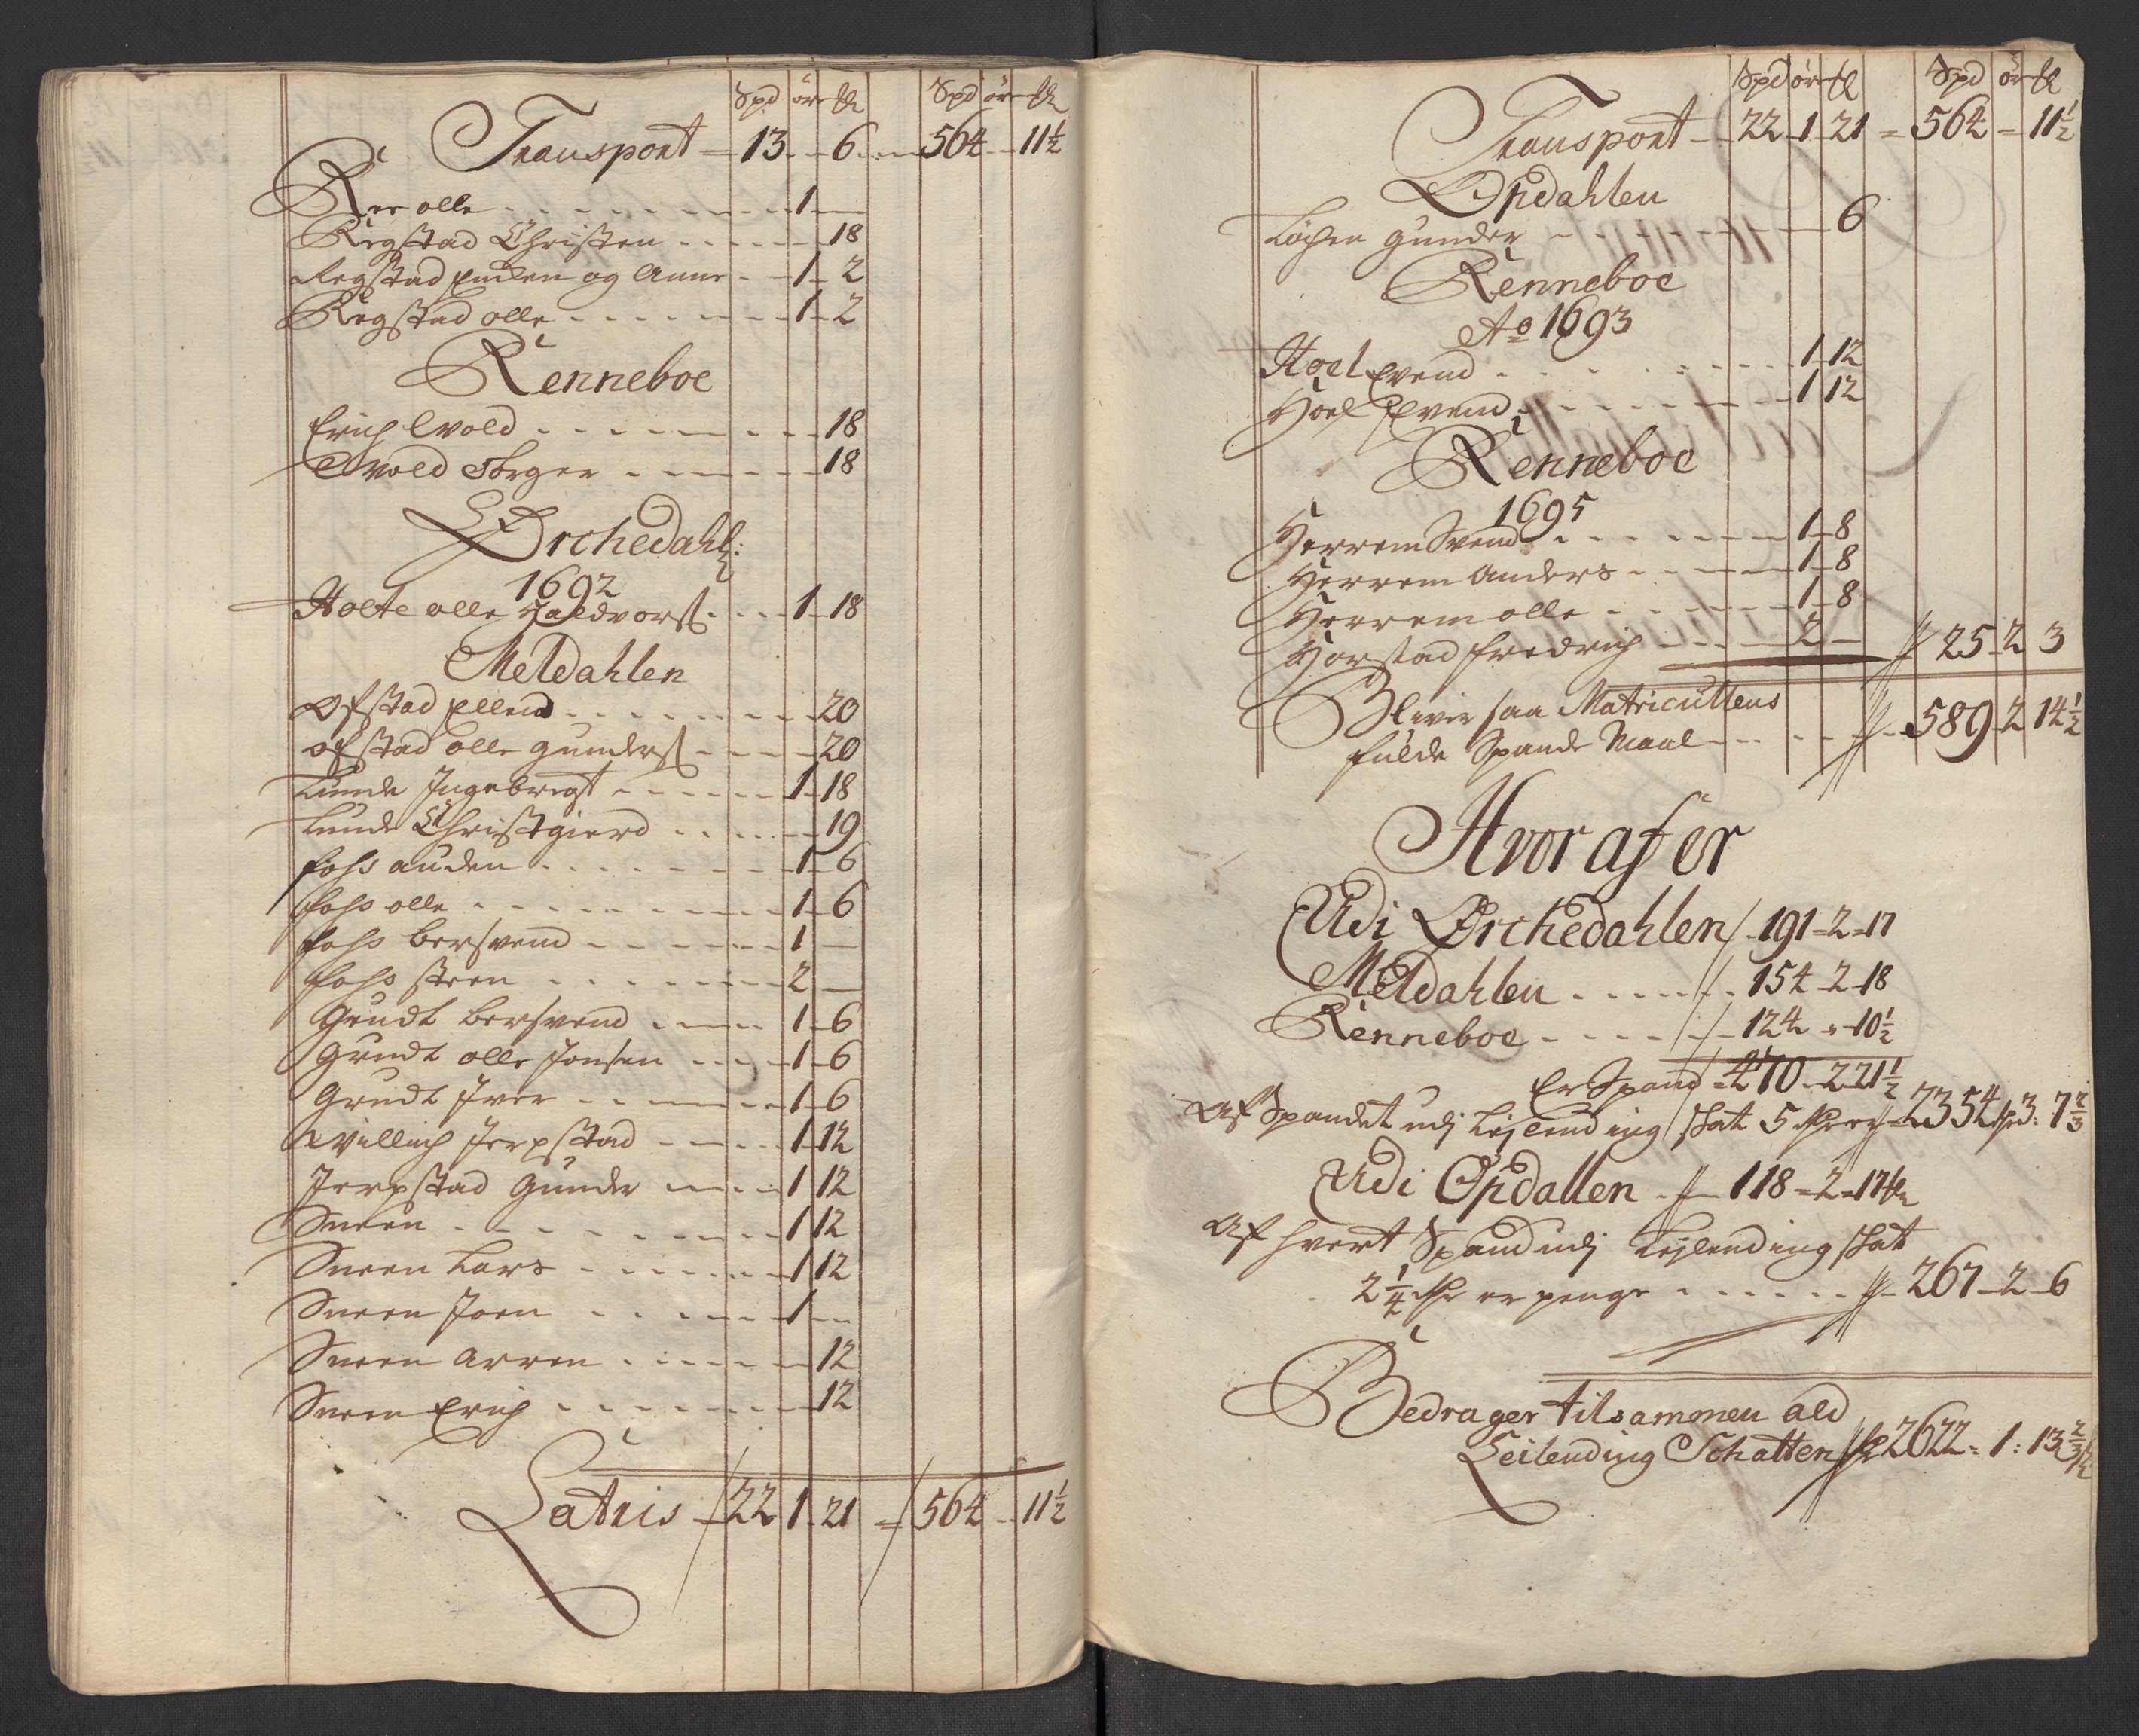 Spd ør ₶ Spd ør ₶
Transport 13 - 6 564 - 11½
Rœe olle - - - 1 -
Rogstad Christen - - - 18
Rogstad Enken og Anne - - 1 - 2
Rogstad olle - - - 1 - 2
Renneboe
Erich Qvold - - - 18
Qvold Børger - - - 18
Ørchedahl:
1692
Holte olle Haldvorss: - - 1 - 18
Meldahlen
Ofstad Ellend - - - 20
ofstad olle gunderss - - 20
Lunde Ingebrigt - - - 1 - 18
Lunde Christgierd - - - 19
fohs auden - - - 1 - 6
fohs olle - - - 1 - 6
fohs bersvend - - - 1 -
fohs steen - - - 2 -
Grudt bersvend - - - 1 - 6
Grudt olle Jonsen - - - 1 - 6
Grudt Iver - - - 1 - 6
Willich Jerpstad - - - 1 - 12
Jerpstad Gunder - - - 1 12
Sneen - - - 1 12
Sneen Lars - - - 1 12
Sneen Joen - - - 1 -
Sneen Arren - - - 12
Sneen Erich - - - 12
Latris 22 1 - 21 = 564 - 11½
Spd ør ₶ Spd ør ₶
Transport - 22 - 1 - 21 = 564 = 11½
Opdahlen
Løchen gunder - - - 6
Renneboe
Ao 1693
Hoel Evend - - - 1 - 12
Hoel Evend - - - 1 12
Renneboe
1695
Herrem Svend - - - 1 - 8
Herrem Anders - - - 1 - 8
Herrem olle - - - 1 - 8
Horstad fredrich - - - 2 - // 25 - 2 3
Bliver saa Matricullens
fulde Spande Maal - - - 589 - 2 14½
Hvor af er
Udi Ørchedahlen / 191 = 2 = 17
Meldahlen - - - 154 - 2 - 18
Renneboe - - - 124 - " - 10½
Er Spand = 470 - 2 21½
Af Spandet udj Lejlending skat 5 ort er 2354 : 3 : 7⅔
Udi Opdallen - 118 = 2 = 17 ₶
Af hvert Spand udj Lejlending skat
2¼ ort er penge - - - 267 - 2 - 6
Bedrager tilsammen ald
Leilending Schatten 2622 = 1 : 13⅔